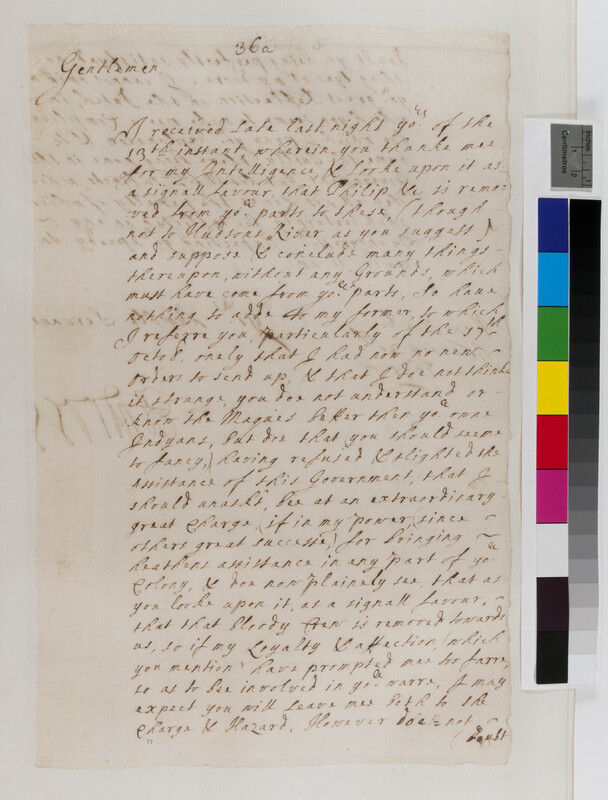 36a
Gentlemen
I received late last night yo.rs of the
13th instant, wherein you thanke mee
for my Intelligence, & looke upon it as
a signall favour, that Philip &c is remo=
=ved from yo.r parts to these, (though
not to Hudsons River as you suggest)
and suppose & conclude many things
thereupon, without any Grounds, which
must have come from yo.r parts, So have
nothing to adde to my former, to which
I referre you, particularly of the 17th
Octobr. onely that I had now no new
orders to send up, & that I doe not thinke
it strange, you doe not understand or
know the Maques better then yo.r owne
Indyans, but doe that you should seeme
to fancy, (having refused & slighted the
assistance of this Government, that I
should unask't, bee at an extraordinary
great charge (if in my power, since
others great successe) for bringing
heathens assistance in any part of yo.r
Colony, & doe now plainely see, that as
you looke upon it, as a signall favour,
that that bloody Crew is removed towards
us, so if my Loyalty & affection (which
you mention) have prompted mee too farre,
so as to bee involved in yo.r warre, I may
expect you will leave mee both to the
Charge & Hazard. However doe not
(doubt
Centimetres
inches